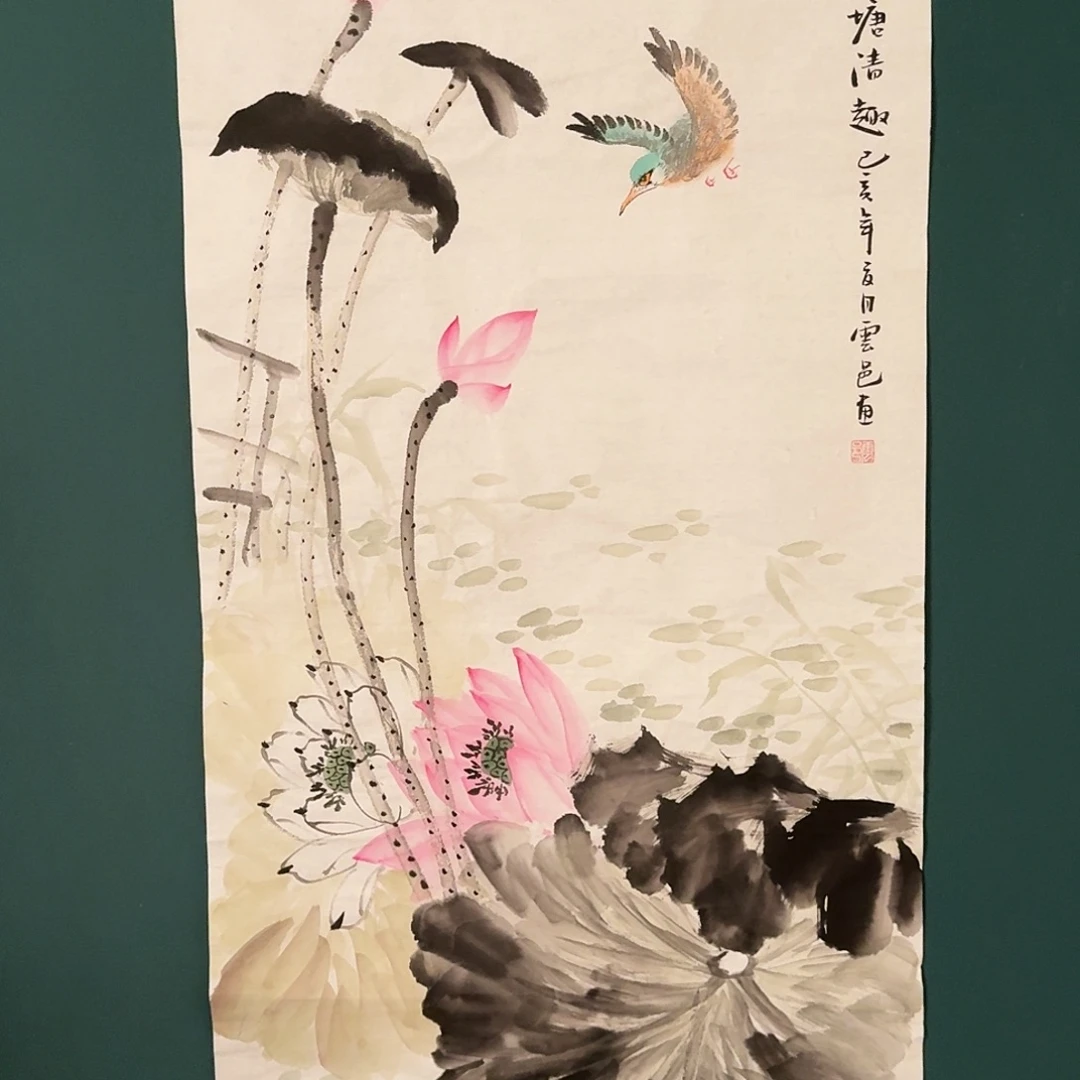 塘清趣己亥年夏月雲邑畫